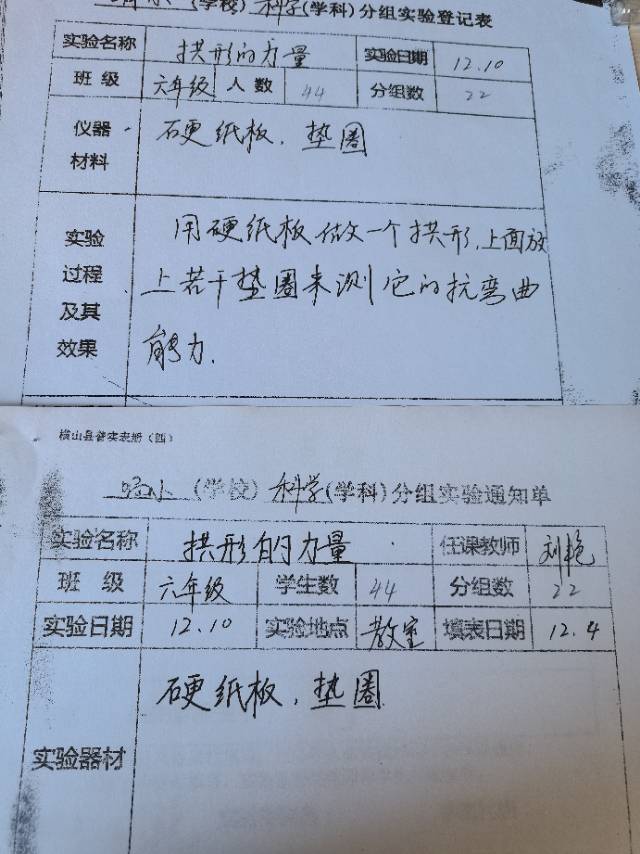 (学校) 科学 (学科) 分组实验登记表
实验名称 拱形的力量 实验日期 12.10
班 级 六年级 人 数 44 分组数 22
仪器材料 硬纸板、垫圈
实验过程及其效果
用硬纸板做一个拱形,上面放
上若干垫圈来测它的抗弯曲
能力.
横山县普实表册(四)
(学校) 科学 (学科) 分组实验通知单
实验名称 拱形的力量 任课教师 刘艳
班 级 六年级 学生数 44 分组数 22
实验日期 12.10 实验地点 教室 填表日期 12.4
实验器材 硬纸板、垫圈